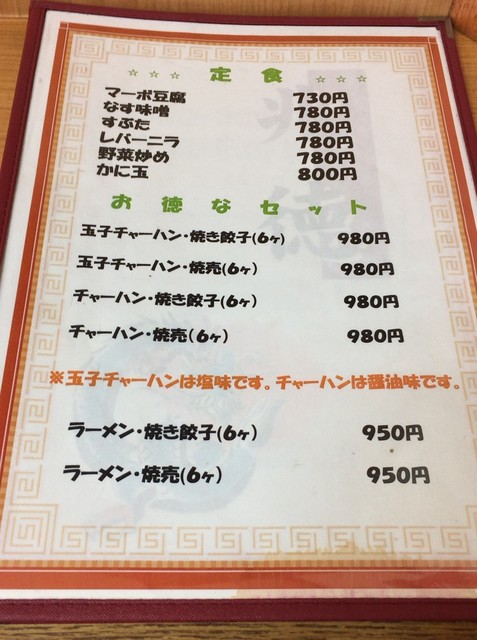 ☆☆☆ 定食 ☆☆☆
マーボ豆腐 730円
なす味噌 780円
すぶた 780円
レバーニラ 780円
野菜炒め 780円
かに玉 800円
お徳なセット
玉子チャーハン・焼き餃子(6ヶ) 980円
玉子チャーハン・焼売(6ヶ) 980円
チャーハン・焼き餃子(6ヶ) 980円
チャーハン・焼売(6ヶ) 980円
※玉子チャーハンは塩味です。チャーハンは醤油味です。
ラーメン・焼き餃子(6ヶ) 950円
ラーメン・焼売(6ヶ) 950円